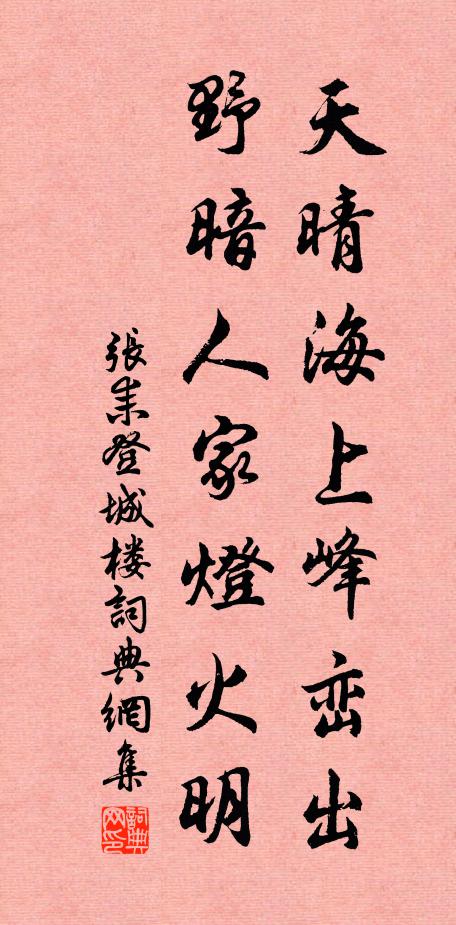 天晴海上峰峦出
野暗人家燈火明
張耒登城楼詞典網集
詞典网印